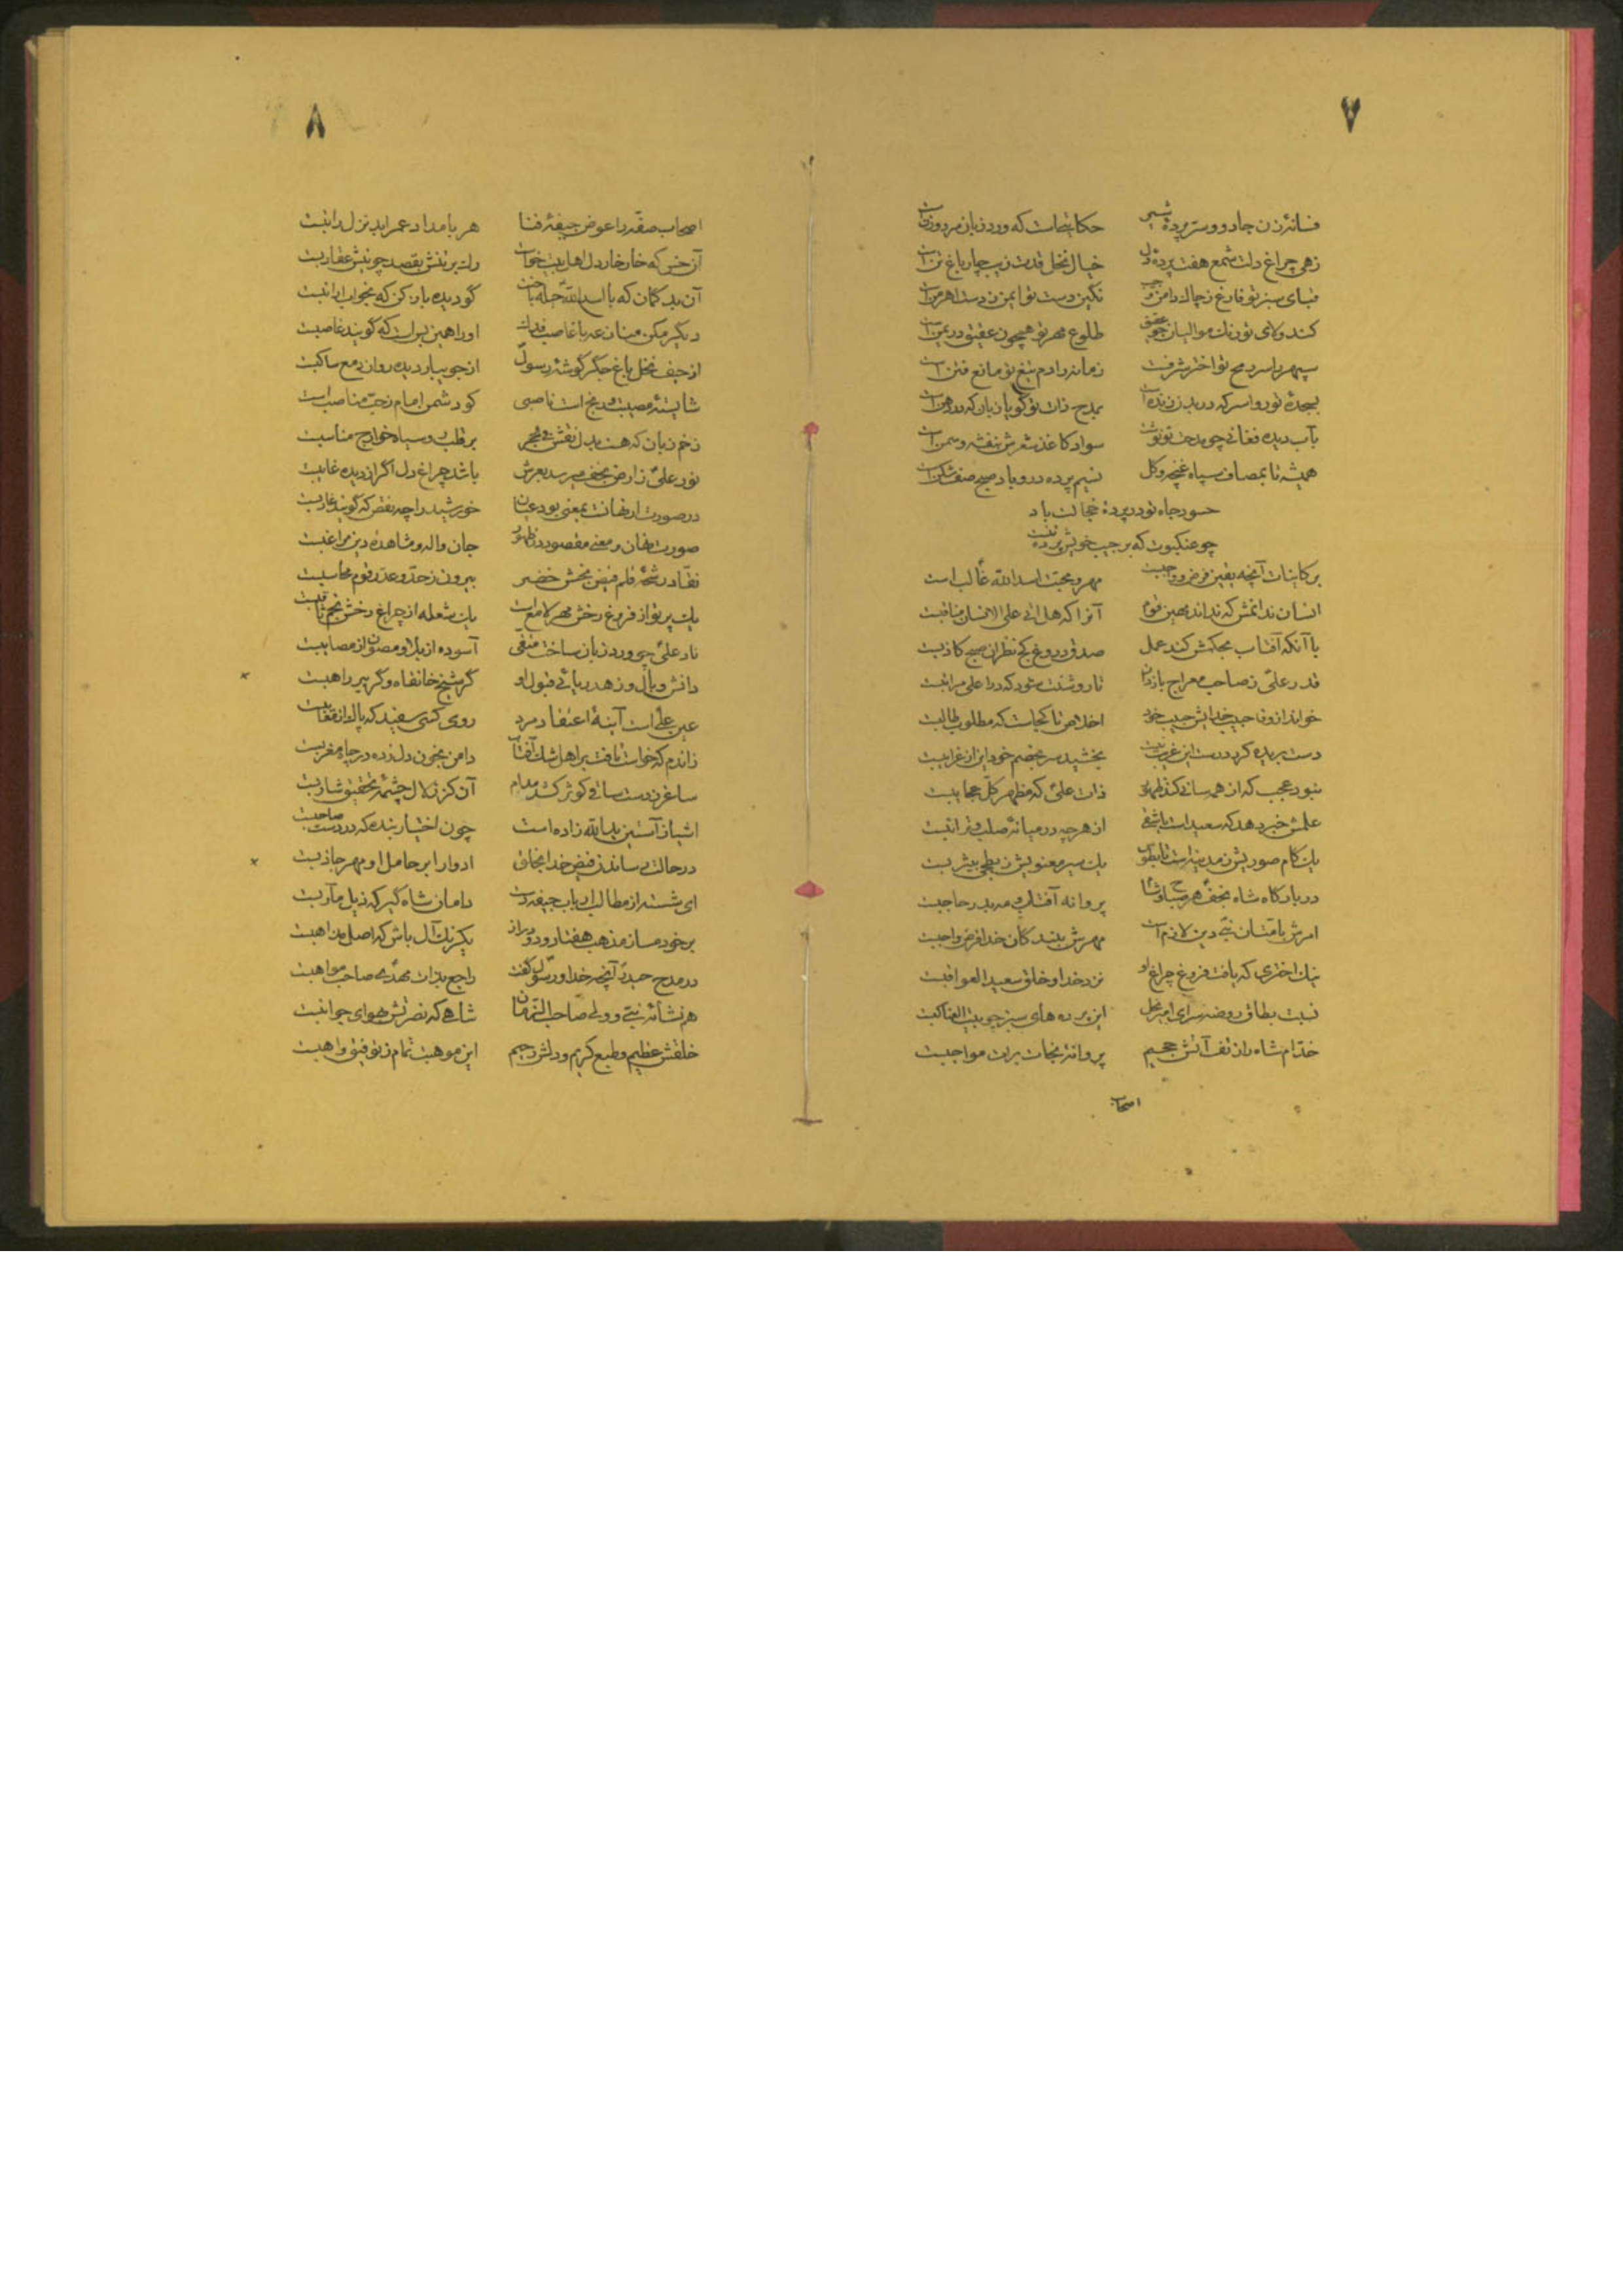 ۷
فسانهٔ زن جادو و ستر پردهٔ حکایتیست که ورد زبان مرد و زنست
زهی چراغ دلت شمع هفت پردهٔ دل خیال نخل قدت زیب چار باغ تن است
قبای سبز تو فارغ ز چاك دامن و نگین دست تو ایمن ز دست اهرمن است
کند ولای تو رنك موالیان چو عقیق طلوع مهر تو همچون عقیق در یمن است
سپهر را سر مدح تو اختر شرفست زمانه را دم تیغ تو مانع فتن است
بسجدهٔ تو رواسر که در بدن زنده است بمدح ذات تو گویا زبان که در دهن است
بآب دیده فغانی چو مدحت تو نوشت سواد کاغذ شعرش بنفشه و سمن است
همیشه تا بمصاف سپاه غنچه و کل نسیم پرده در و باد صبح صف شکن است
حسود جاه تو در پردهٔ خجالت باد
چو عنکبوت که بر جیب خویش پرده تنست
بر کاینات آنچه بیقین فرض و واجبست مهر و محبت اسد الله غالب است
انسان ندانمش که نداند بهین قوم آنرا که هل اتی علی الانسان مناقبست
با آنکه آفتاب بحکمش کند عمل صدق دروغ کج نظران صبح کاذبست
قدر علی ز صاحب معراج بازدان تا روشنت شود که در اعلی مراتبست
خواند از وفا حبیب خدایش حبیب خود اخلاص تا کجاست که مطلوب طالبست
دست بریده کرد درست این غریب نیست بخشید سر بخصم خود این از غرایبست
نبود عجب که از همه سانی کند ظهور ذات علی که مظهر کل عجایبست
علمش خبر دهد که سعید است یا شقی از هر چه در میانهٔ صلب و ترائبست
یك کام صوریش ز مدینه است تا بطوس یك سیر معنویش ز بطحی بیثربست
در بارکاه شاه نجف هر صباح و شام پروانه آفتاب و مه بدر حاجبست
امرش بامتثان نبی دین لازم است مهرش ببند کان خدا فرض و واجبست
نیك اختری که یافت فروغ چراغ او نزد خدا و خلق سعید العواقبست
نسبت بطاق روضه سرای امیر نحل این پرده های سبز چو بیت العناکبست
خدّام شاه را ز تف آتش جحیم پروانهٔ نجات برات مواجبست
اصحاب
۸
اصحاب صفّه را عوض جیفهٔ فنا هر بامداد عمر ابد نزل راتبست
آن خس که خار خار دل اهل بیت خواست رك بر تنش بقصد چو نیش عقاربست
آن بد گمان که با اسد الله حیله باخت گو دیده باز کن که بخواب ارانبست
دیگر مکن منازعه با غاصب فدك او را همین بس است که گویند غاصبست
از حیف نخل باغ جگر گوشهٔ رسول از جویبار دیده روان دمع ساکبست
شایستهٔ مصیبت و رنج است ناصبی کو دشمن امام ز حبّ مناصب است
زخم زبان که هست بدل نقش فی الحجر بر قلب رو سیاه خوارج مناسبست
نور علی ز ارض نجف میرسد بعرش باشد چراغ دل اگر از دیده غایبست
در صورت ار نهانست بمعنی بود عیان خورشید را چه نقص که گویند غاربست
صورت نهان و معنی مقصود در ظهور جان واله و مشاهده دین مراغبست
نقّاد رشحهٔ قلم فیض بخش خضر بیرون ز حدّ و عدّ رقوم محاسبست
یك پرتو از فروغ رخش مهر لامع است یك شعله از چراغ رخش نجم ثاقبست
ناد علی چو ورد زبان ساخت متّقی آسوده از بلا و مصون از مصایبست
دانش وبال و زهد ریائی قبول او گر شیخ خانقاه و گر پیر راهبست
عین علی است آینهٔ اعتقاد مرد روی کسی سفید که پاك از معایبست
زاندم که خواست تافت بر اهل شك آفتاب دامن بخون دل زده در چاه مغربست
ساغر ز دست ساقی کوثر کشد مدام آن کز زلال چشمهٔ تحقیق شاربست
اشیا ز آستین ید الله زاده است چون اختیار بنده که در دست صاحبست
در حالت رساندن فیض خدا بخلق ادوار ابر حامل او مهر جاذبست
ای شسته از مطالب ارباب جیفه دست دامان شاه گیر که ذیل مآربست
بر خود مساز مذهب هفتاد و دو دراز یکرنك آل باش که اصل مذاهبست
در مدح حیدر آنچه خدا و رسول گفت راجع بذات مهدی صاحب مواهبست
هم نشأهٔ نبی و ولی صاحب الزمان شاهی که نصرتش بهوای جوانبست
خلقش عظیم و طبع کریم و دلش رحیم این موهبت تمام ز توفیق واهبست